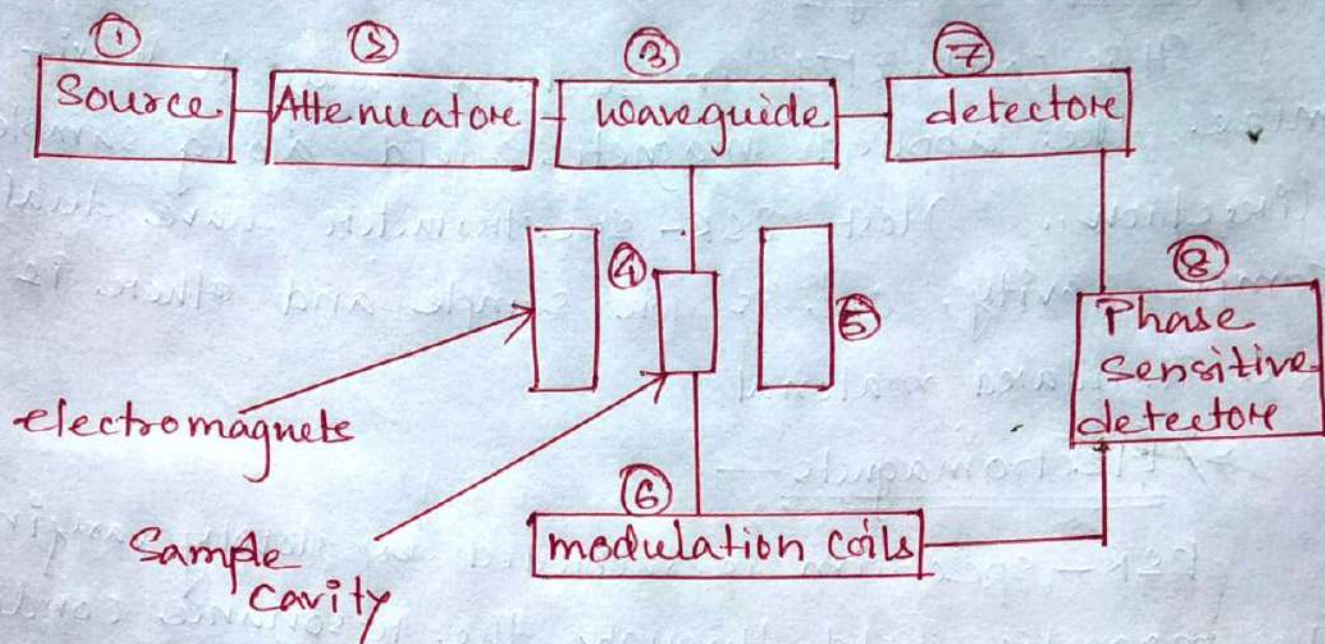 ① ② ③ ⑦
Source Attenuatore waveguide detectore
④ ⑤ ⑧
Phase
sensitive
detectore
electromagnets
⑥
Sample
cavity
modulation coils